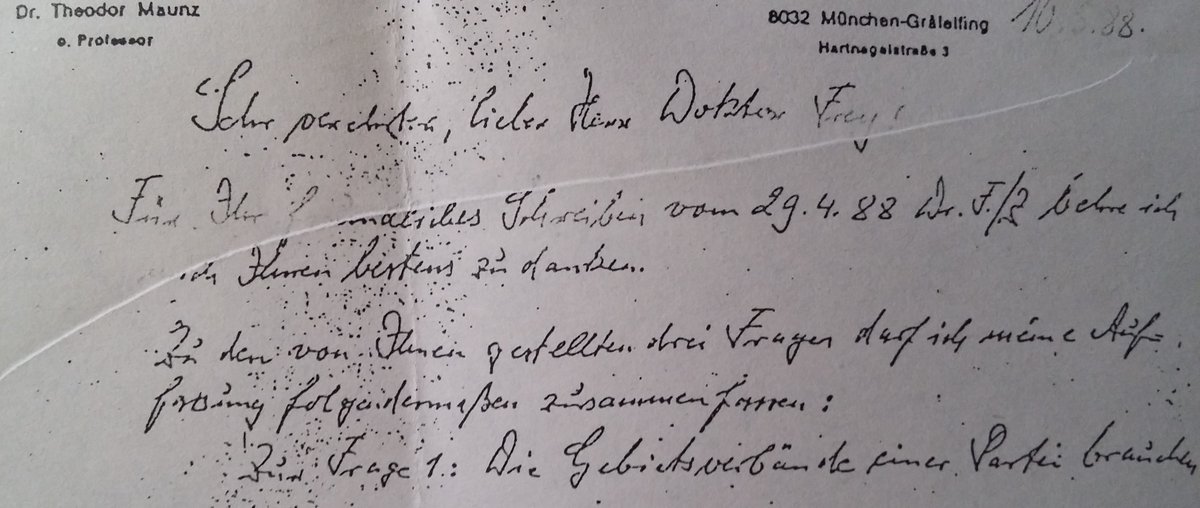 Dr. Theodor Maunz
o. Professor
8032 München-Gräfelfing 10.5.88.
Hartnagelstraße 3
Sehr verehrter, lieber Herr Doktor Frey!
Für Ihr Schreiben vom 29.4.88 Dr. F./ ich
Ihnen bestens zu danken.
Zu den von Ihnen gestellten drei Fragen darf ich meine Auf-
fassung folgendermaßen zusammenfassen:
Zur Frage 1: Die Gebietsverbände einer Partei brauchen